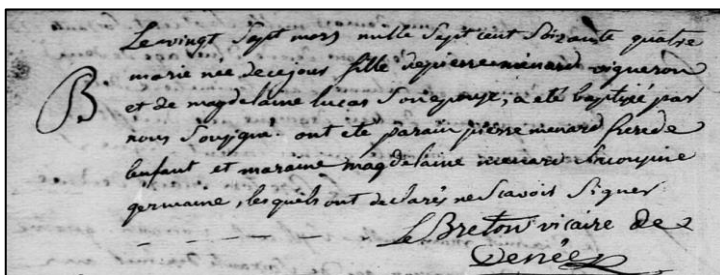 Le vingt sept mars mille sept cent soixante quatre
B marie née de ce jour fille de pierre menard vigneron
et de magdelaine lucas son epouse, a eté baptisé par
nous sousigné. ont eté parain pierre menard frere de
lenfant et maraine magdelaine menard sa cousine
germaine, lesquels ont declarés ne scavoir signer
Le Breton vicaire de
Denée